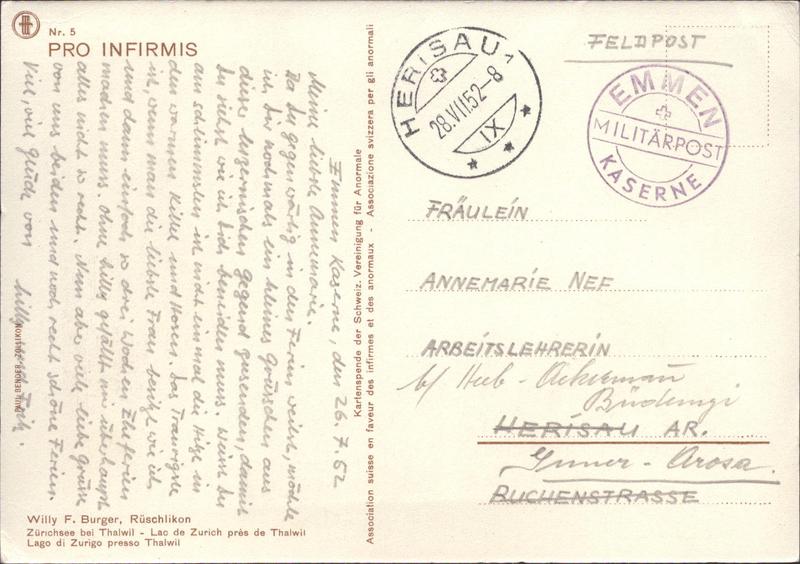 Nr. 5
PRO INFIRMIS
Emmen Kaserne, den 26.7.52
Meine liebste Annemarie.
Da Du gegenwärtig in den Ferien weilst, möchte
ich Dir nochmals ein kleines Grüsschen aus
dieser luzernischen Gegend zusenden, damit
Du siehst wie ich Dich beneiden muss. Weisst Du
am schlimmsten ist nicht einmal die Hitze in
den warmen Kittel und Hosen. Das Traurigste
ist, wenn man die liebste Frau besitzt wie ich
und dann einfach so drei Wochen Eheferien
machen muss. Ohne Lilly gefällt mir überhaupt
alles nicht so recht. Nun aber viele liebe Grüsse
von uns beiden und noch recht schöne Ferien.
Viel, viel Glück von
Lilly und
PAUL BENDER, ZOLLIKON
Willy F. Burger, Rüschlikon
Zürichsee bei Thalwil - Lac de Zurich près de Thalwil
Lago di Zurigo presso Thalwil
Kartenspende der Schweiz. Vereinigung für Anormale
Association suisse en faveur des infirmes et des anormaux - Associazione svizzera per gli anormali
HERISAU 1
28.VII.52-8
IX
FELDPOST
EMMEN
MILITÄRPOST
KASERNE
FRÄULEIN
ANNEMARIE NEF
ARBEITSLEHRERIN
HERISAU AR.
Arosa.
BUCHENSTRASSE